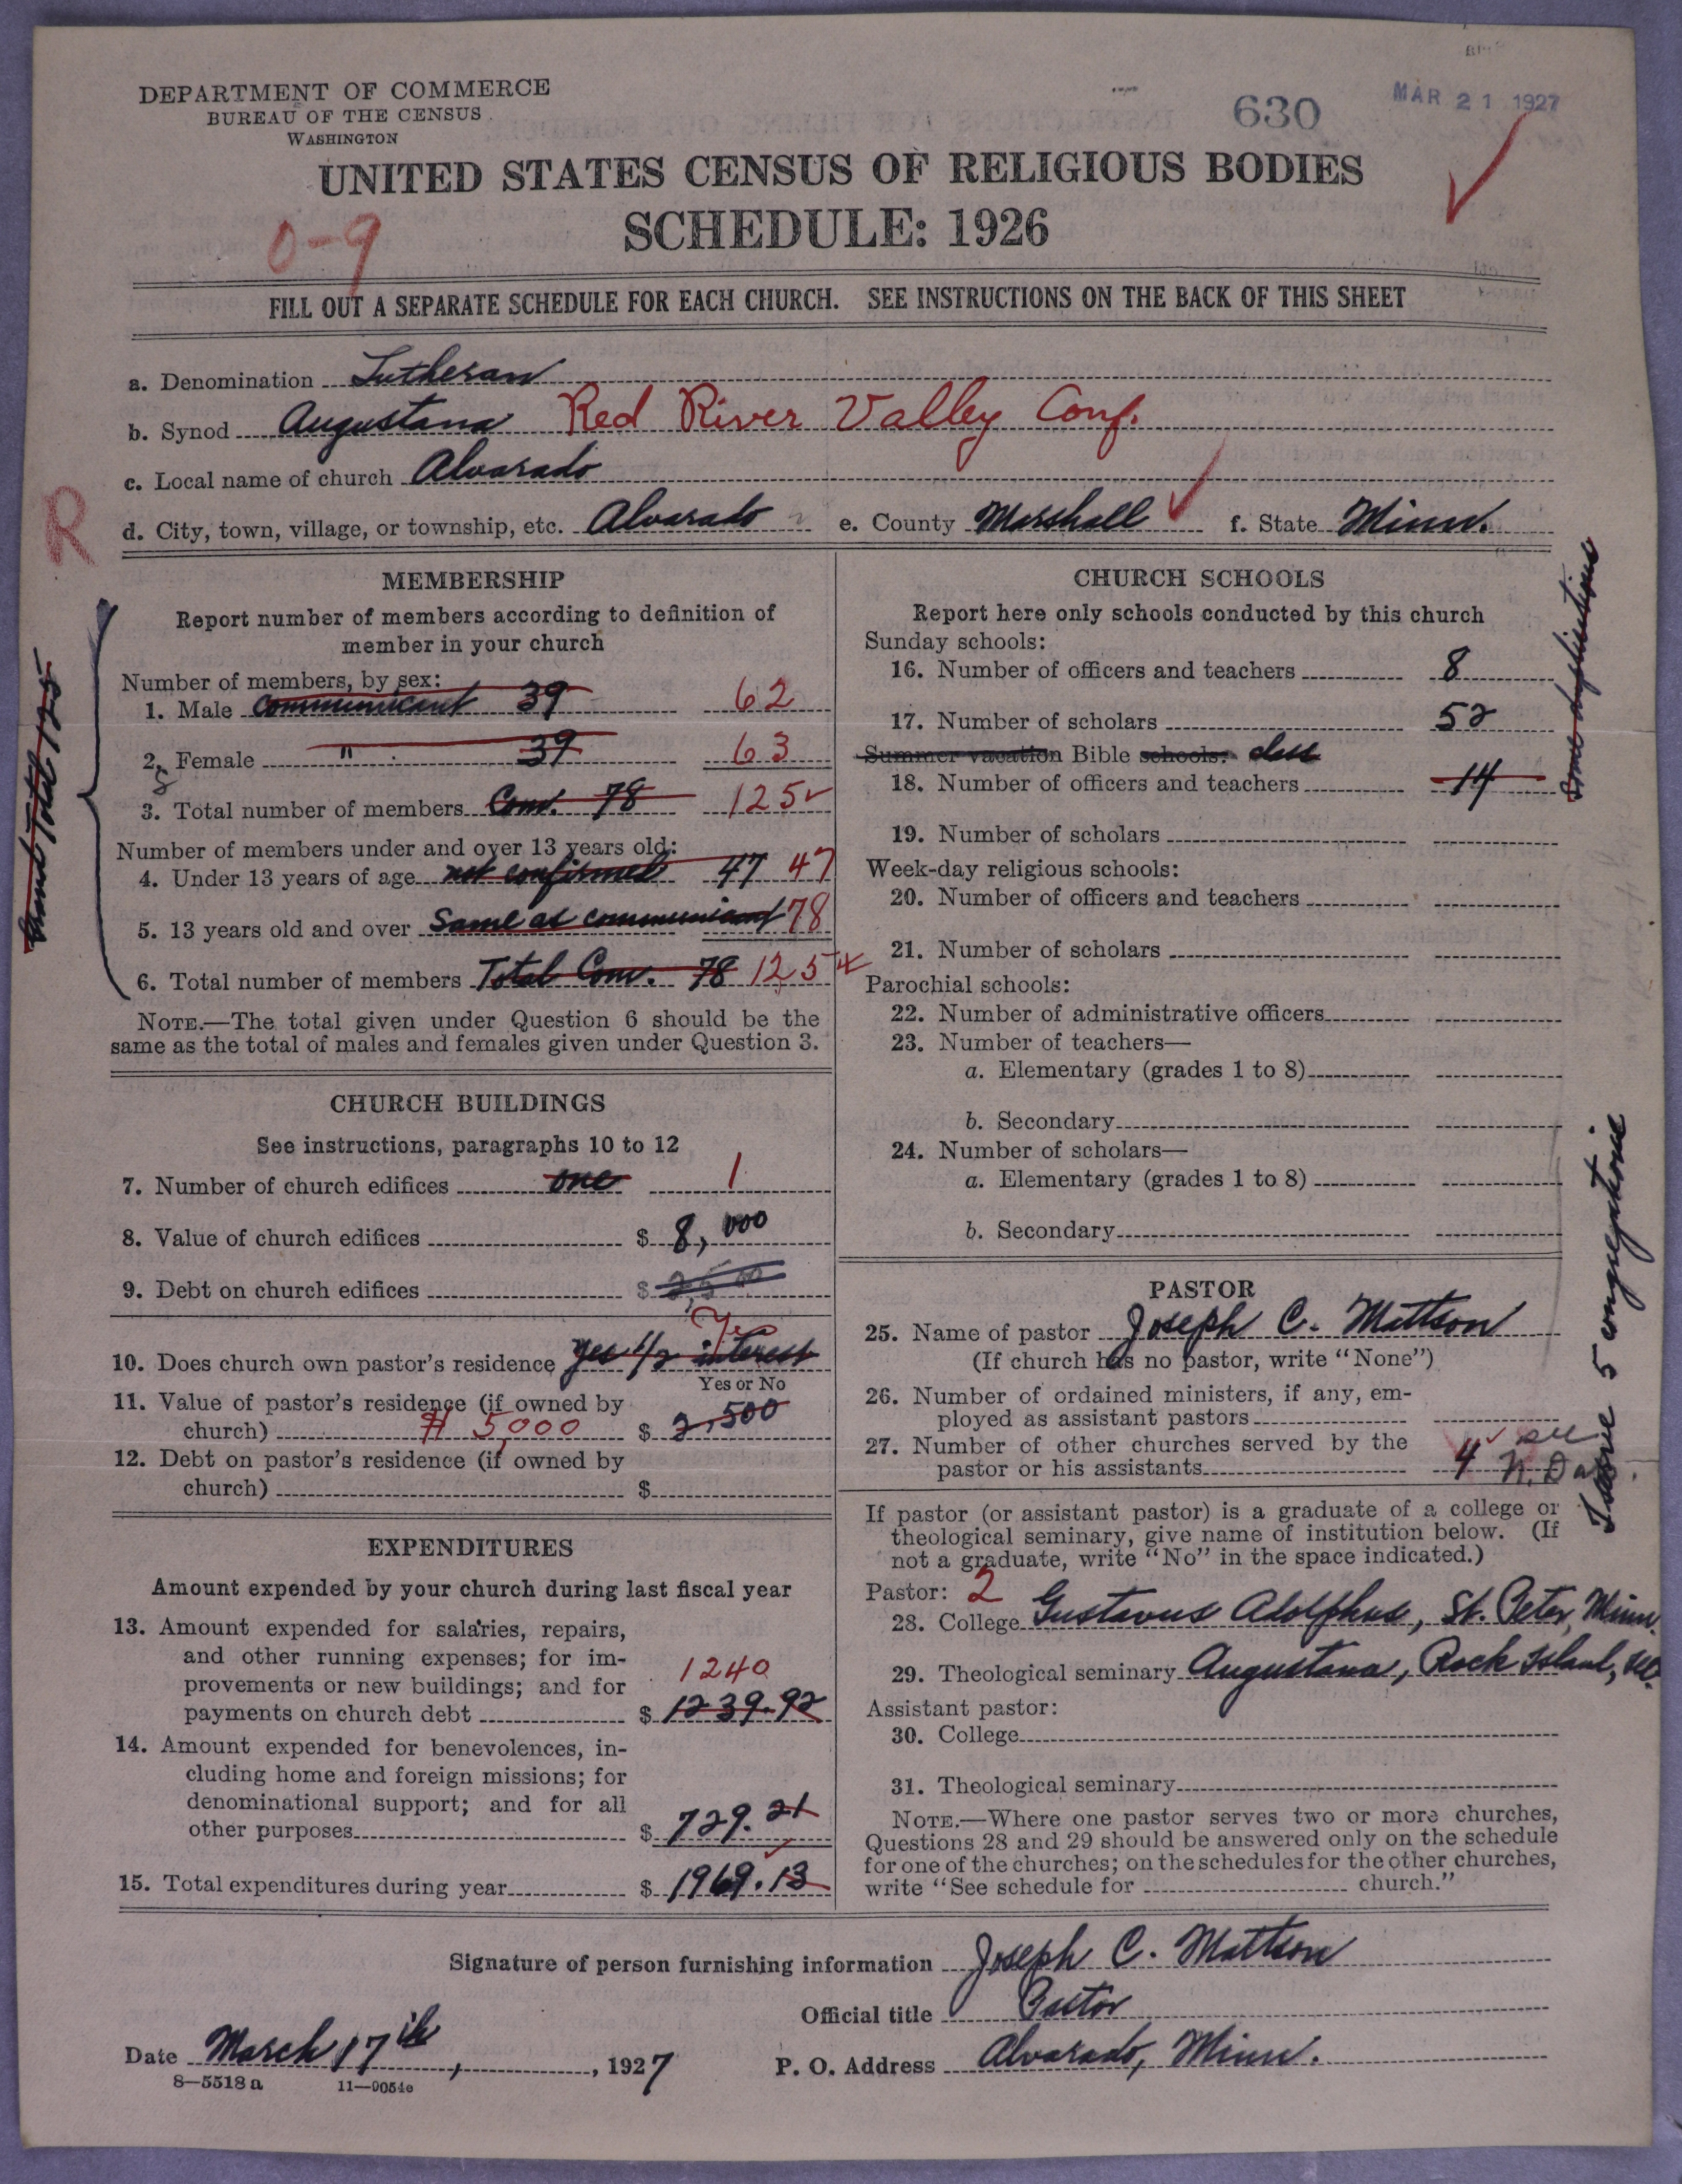 DEPARTMENT OF COMMERCE
BUREAU OF THE CENSUS
WASHINGTON
630
MAR 21 1927
UNITED STATES CENSUS OF RELIGIOUS BODIES
SCHEDULE: 1926
0-9
FILL OUT A SEPARATE SCHEDULE FOR EACH CHURCH. SEE INSTRUCTIONS ON THE BACK OF THIS SHEET
a. Denomination Lutheran
b. Synod Augustana Red River Valley Conf.
c. Local name of church Alvarado
R
d. City, town, village, or township, etc. Alvarado e. County Marshall f. State Minn.
MEMBERSHIP
Report number of members according to definition of
member in your church
Number of members, by sex:
1. Male communicant 39 62
2. Female " 39 63
3. Total number of members Com. 78 125
Number of members under and over 13 years old:
4. Under 13 years of age not confirmed 47 47
5. 13 years old and over Same as communicant 78
6. Total number of members Total Com. 78 125
NOTE.—The total given under Question 6 should be the
same as the total of males and females given under Question 3.
Total 125
CHURCH BUILDINGS
See instructions, paragraphs 10 to 12
7. Number of church edifices one 1
8. Value of church edifices $ 8,000
9. Debt on church edifices $ 2,500
10. Does church own pastor's residence yes 1/2 interest Yes
Yes or No
11. Value of pastor's residence (if owned by
church) # 5,000 $ 2,500
12. Debt on pastor's residence (if owned by
church) $
EXPENDITURES
Amount expended by your church during last fiscal year
13. Amount expended for salaries, repairs,
and other running expenses; for im-
provements or new buildings; and for
payments on church debt $ 1239.92 1240
14. Amount expended for benevolences, in-
cluding home and foreign missions; for
denominational support; and for all
other purposes $ 729.21
15. Total expenditures during year $ 1969.13
CHURCH SCHOOLS
Report here only schools conducted by this church
Sunday schools:
16. Number of officers and teachers 8
17. Number of scholars 52
Summer vacation Bible schools: class
18. Number of officers and teachers 14
19. Number of scholars
Week-day religious schools:
20. Number of officers and teachers
21. Number of scholars
Parochial schools:
22. Number of administrative officers
23. Number of teachers—
a. Elementary (grades 1 to 8)
b. Secondary
24. Number of scholars—
a. Elementary (grades 1 to 8)
b. Secondary
some duplications
PASTOR
25. Name of pastor Joseph C. Mattson
(If church has no pastor, write "None")
26. Number of ordained ministers, if any, em-
ployed as assistant pastors
27. Number of other churches served by the
pastor or his assistants 4 see N. Da
I serve 5 congregations
If pastor (or assistant pastor) is a graduate of a college or
theological seminary, give name of institution below. (If
not a graduate, write "No" in the space indicated.)
Pastor: 2
28. College Gustavus Adolphus, St. Peter, Minn.
29. Theological seminary Augustana, Rock Island, Ill.
Assistant pastor:
30. College
31. Theological seminary
NOTE.—Where one pastor serves two or more churches,
Questions 28 and 29 should be answered only on the schedule
for one of the churches; on the schedules for the other churches,
write "See schedule for church."
Signature of person furnishing information Joseph C. Mattson
Official title Pastor
Date March 17th, 1927 P. O. Address Alvarado, Minn.
8—5518 a 11—9054c